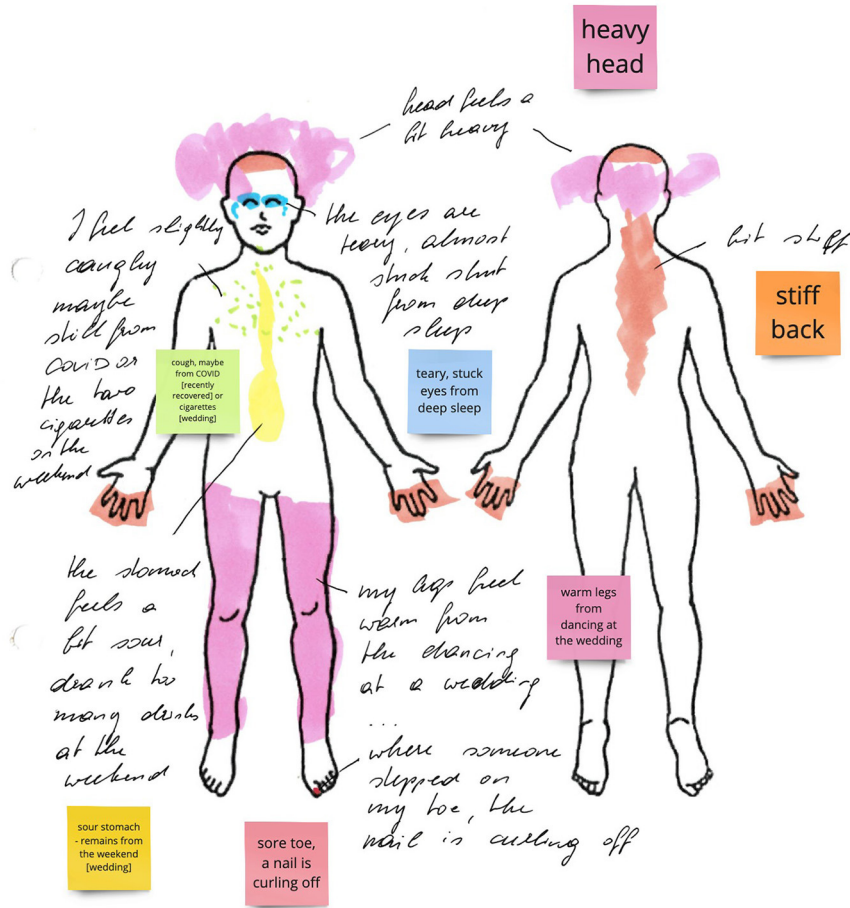 heavy
head
head feels a
bit heavy
I feel slightly
coughy
maybe
still from
COVID or
the two
cigarettes
on the
weekend
the eyes are
teary, almost
stuck shut
from deep
sleep
bit stiff
stiff
back
cough, maybe
from COVID
[recently
recovered] or
cigarettes
[wedding]
teary, stuck
eyes from
deep sleep
the stomach
feels a
bit sour,
drank too
many drinks
at the
weekend
my legs feel
warm from
the dancing
at a wedding
...
where someone
stepped on
my toe, the
nail is curling off
warm legs
from
dancing at
the wedding
sour stomach
- remains from
the weekend
[wedding]
sore toe,
a nail is
curling off